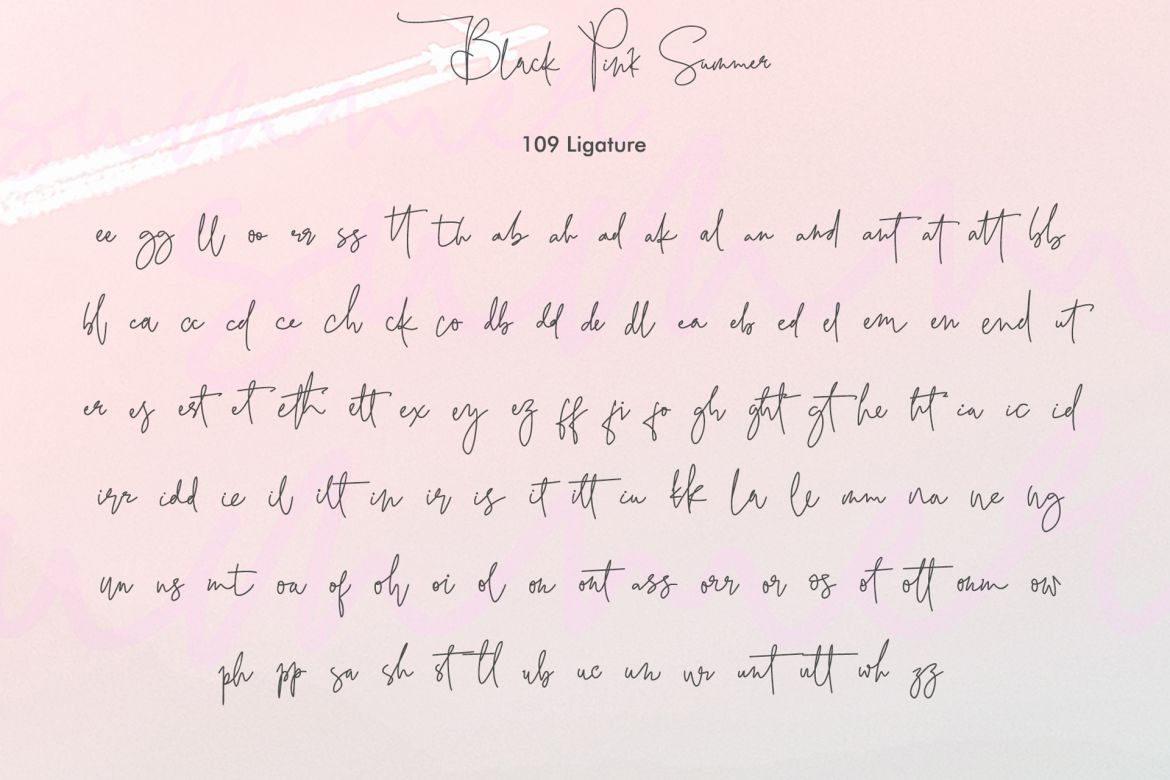 Black Pink Summer
109 Ligature
ee gg ll oo rr ss tt th ab ah ad ak al an and ant at att bb
bl ca cc cd ce ch ck co db dd de dl ea eb ed el em en end ut
er es est et eth ett ex ey ez ff fi fo gh ght gt he ht ia ic id
irr idd ie il ilt in ir is it itt iu kk la le mm na ne ng
nn ns nt oa of oh oi ol on ont ass orr or os ot ott onm ow
ph pp sa sh st tl ub uc un ur unt utt wh zz